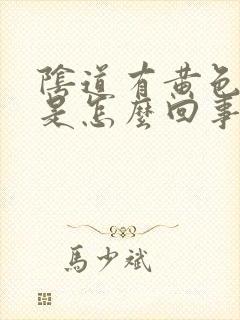 陰道有黃色
是怎麼回事
馬少斌